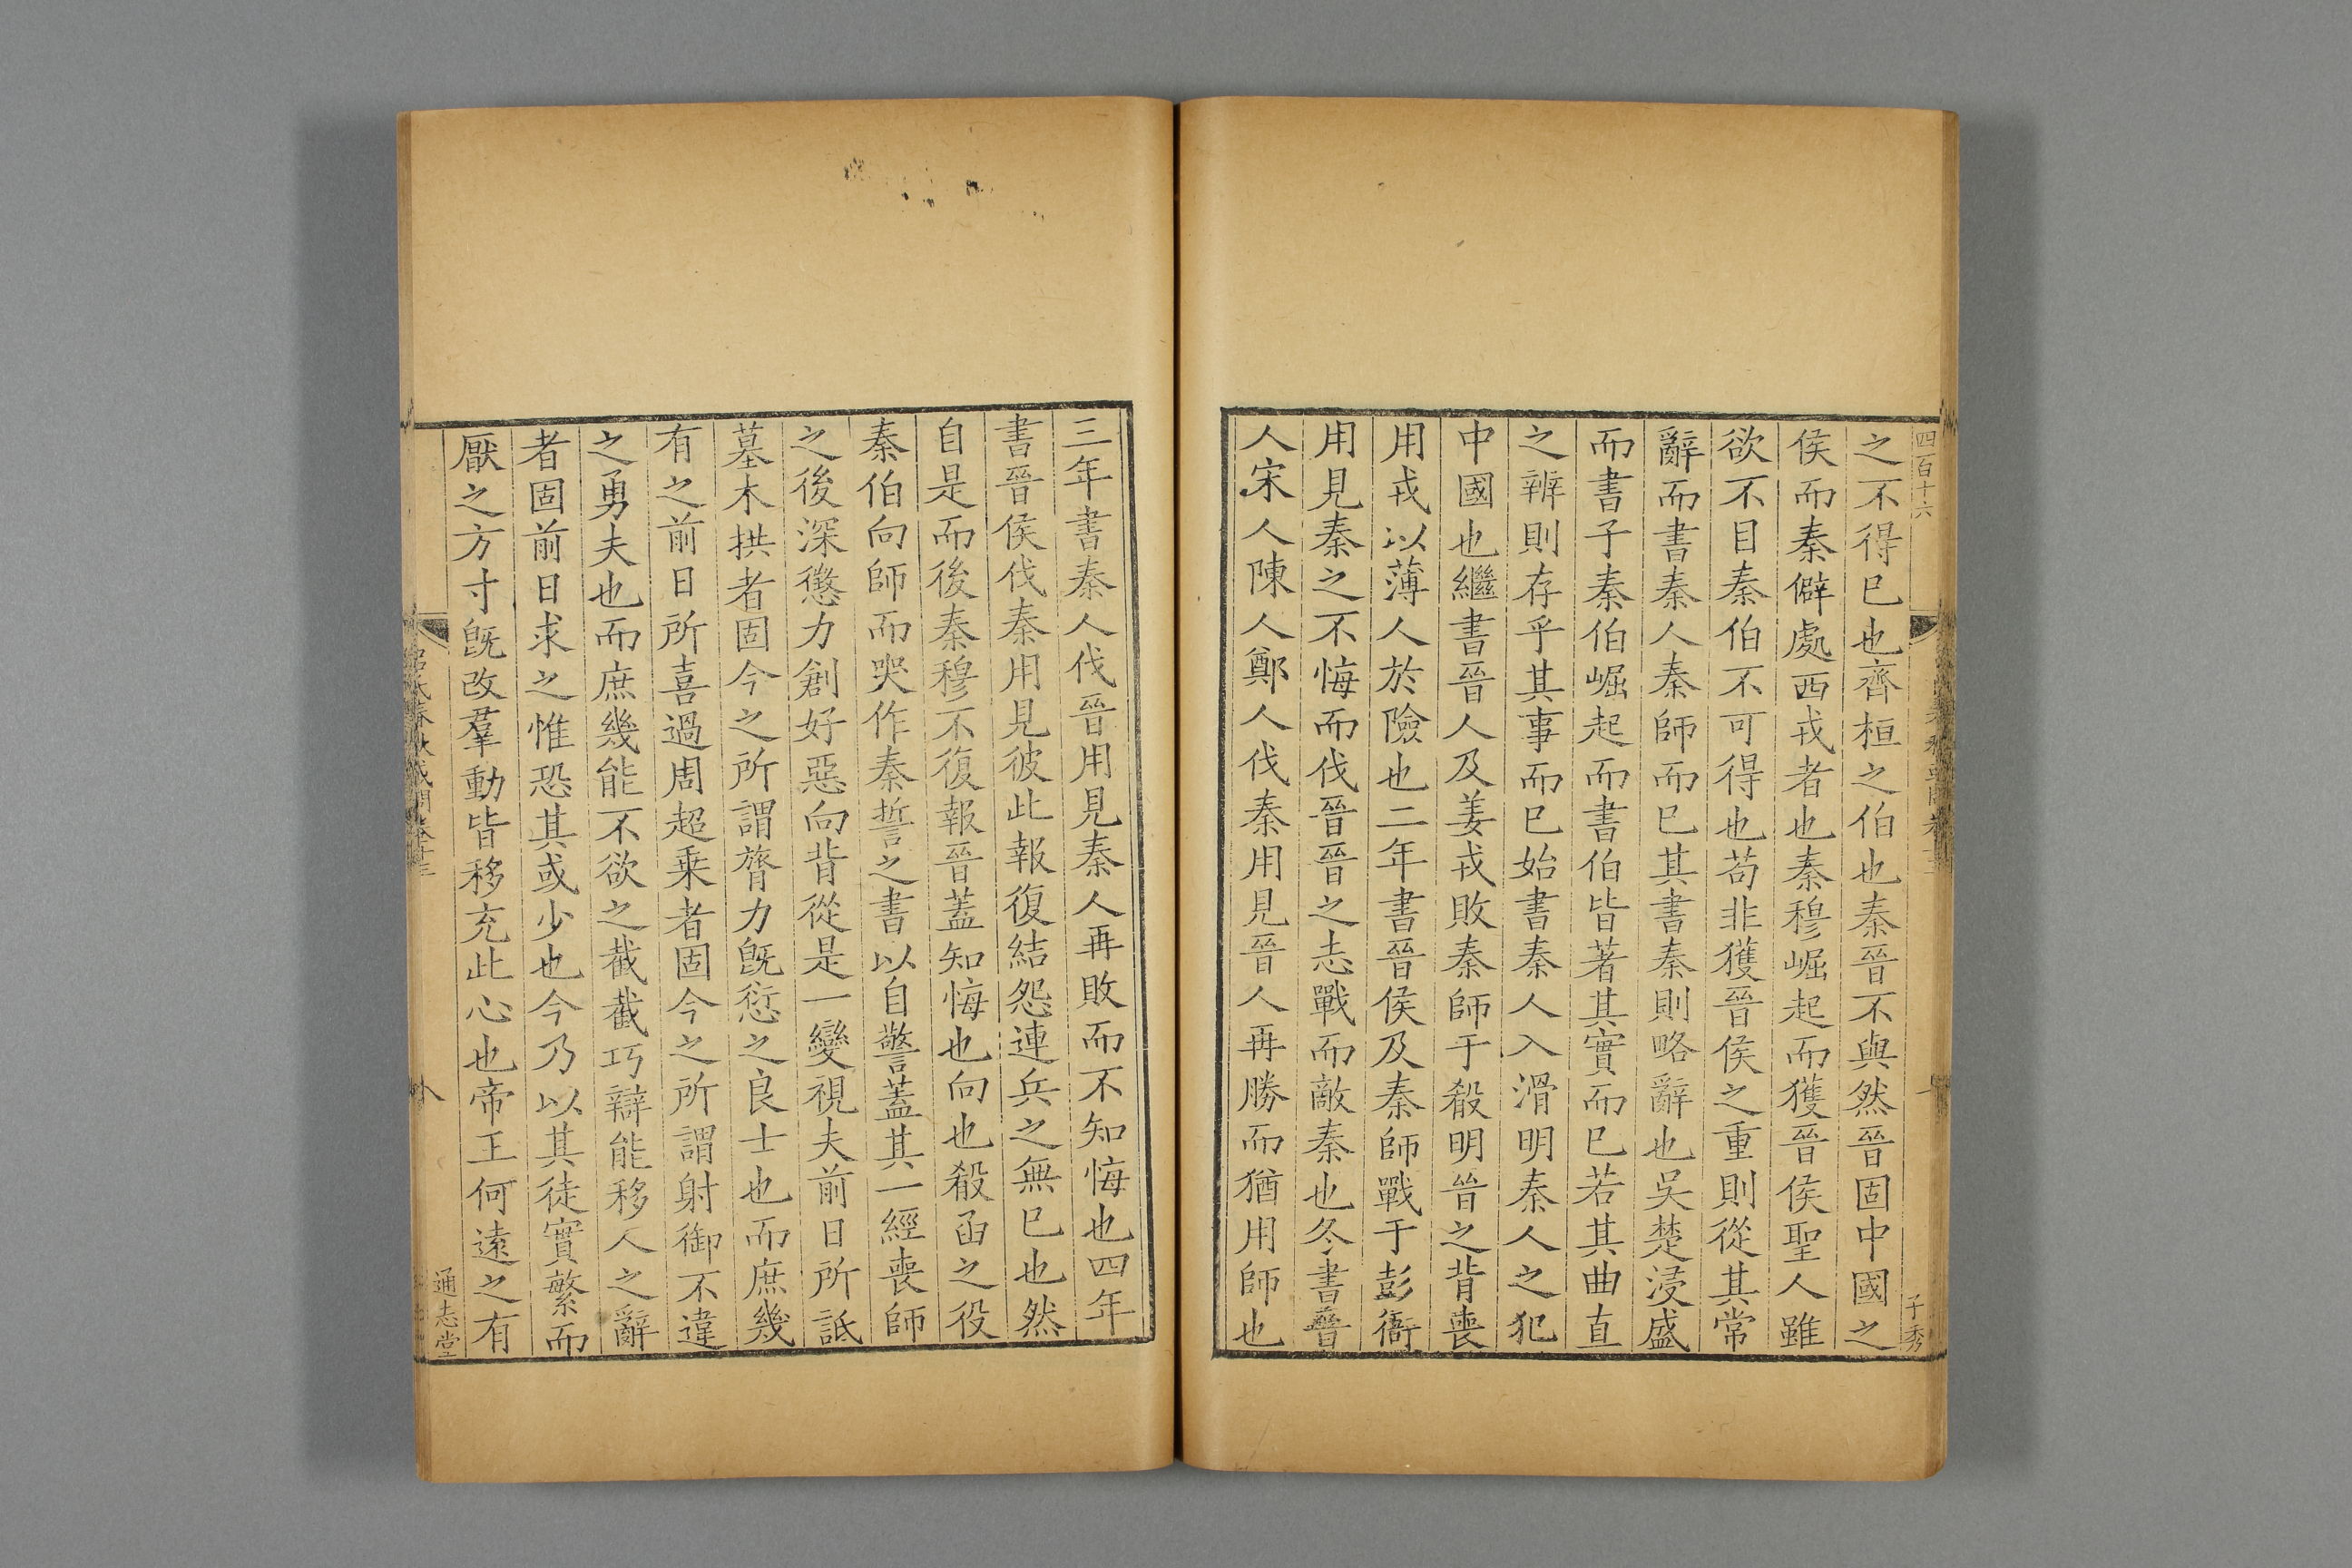 四百十六
子秀
之不得已也齊桓之伯也秦晉不與然晉固中國之
侯而秦僻處西戎者也秦穆崛起而獲晉侯聖人雖
欲不目秦伯不可得也苟非獲晉侯之重則從其常
辭而書秦人秦師而已其書秦則略辭也吴楚浸盛
而書子秦伯崛起而書伯皆著其實而已若其曲直
之辨則存乎其事而已始書秦人入滑明秦人之犯
中國也繼書晉人及姜戎敗秦師于殽明晉之背喪
用戎以薄人於險也二年書晉侯及秦師戰于彭衙
用見秦之不悔而伐晉晉之志戰而敵秦也冬書晉
人宋人陳人鄭人伐秦用見晉人再勝而猶用師也
三年書秦人伐晉用見秦人再敗而不知悔也四年
書晉侯伐秦用見彼此報復結怨連兵之無已也然
自是而後秦穆不復報晉蓋知悔也向也殽函之役
秦伯向師而哭作秦誓之書以自警蓋其一經喪師
之後深懲力創好惡向背從是一變視夫前日所詆
墓木拱者固今之所謂膂力旣愆之良士也而庶幾
有之前日所喜過周超乗者固今之所謂射御不違
之勇夫也而庶幾能不欲之截截巧辯能移人之辭
者固前日求之惟恐其或少也今乃以其徒實繁而
厭之方寸旣改羣動皆移充此心也帝王何遠之有
通志堂